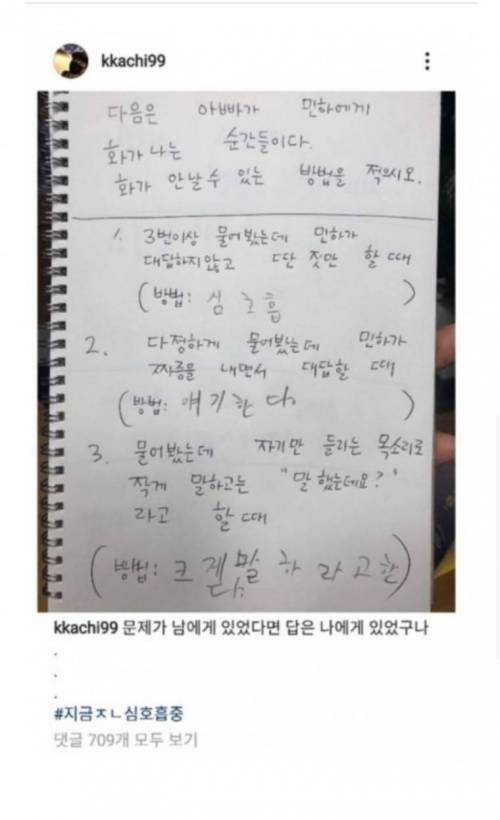 kkachi99
다음은 아빠가 민하에게
화가 나는 순간들이다.
화가 안날 수 있는 방법을 적으시오.
1. 3번이상 물어봤는데 민하가
대답하지않고 딴 짓만 할 때
(방법: 심호흡)
2. 다정하게 물어봤는데 민하가
짜증을 내면서 대답할 때
(방법: 얘기한다)
3. 물어봤는데 자기만 들리는 목소리로
작게 말하고는 "말했는데요?"
라고 할 때
(방법: 크게말하라고한
다.)
kkachi99 문제가 남에게 있었다면 답은 나에게 있었구나
.
.
.
#지금ㅈㄴ심호흡중
댓글 709개 모두 보기